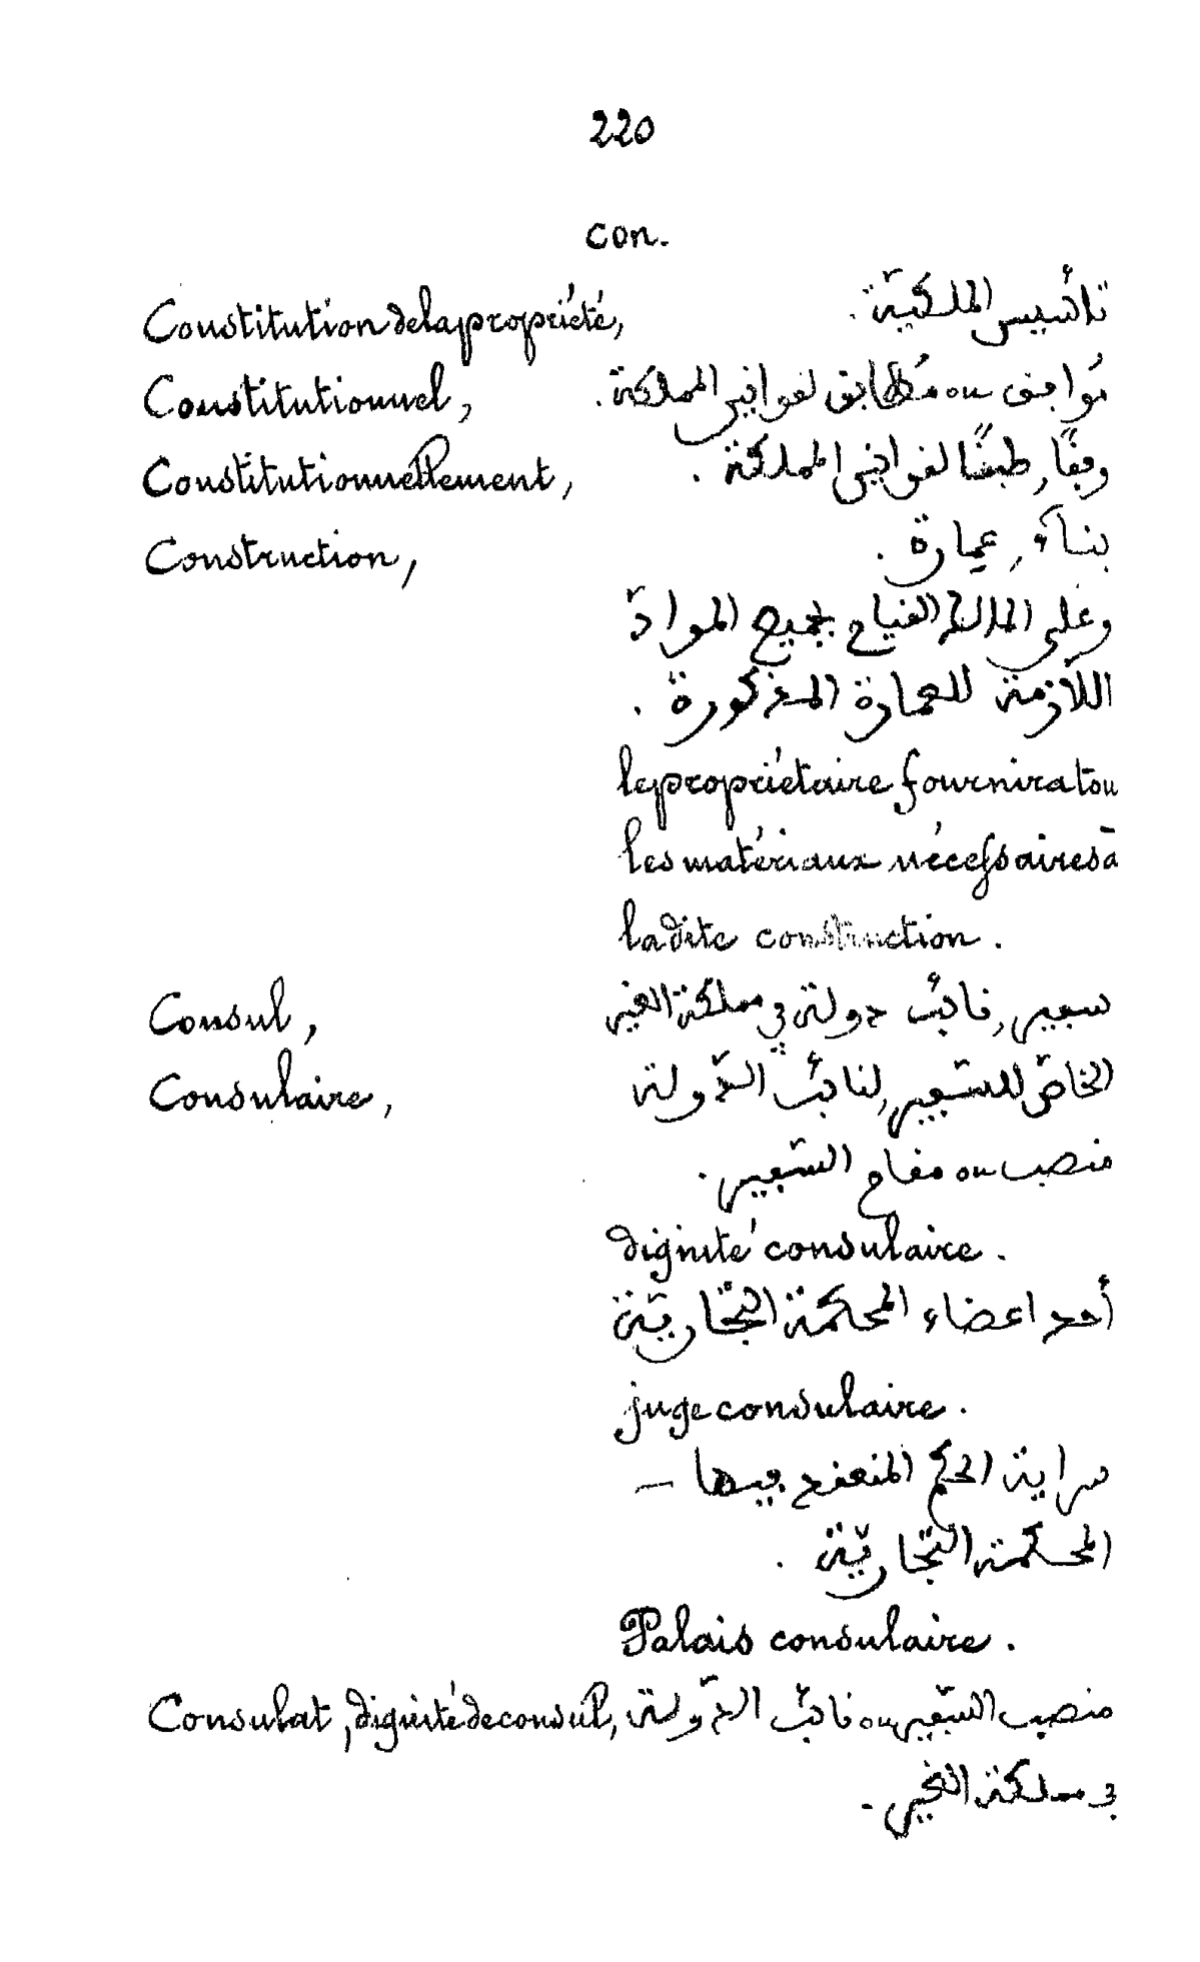 220
con.
Constitution de la propriété, تأسيس الملكيّة.
Constitutionnel, مُوافق ou مُطابق لقوانين المملكة.
Constitutionnellement, وفقًا, طبقًا لقوانين المملكة.
Construction, بنآء, عمارة.
وعلى المالك القيام بجميع الموادّ
اللّازمة للعمارة المذكورة.
le propriétaire fournira tou
les matériaux nécessaires à
ladite construction.
Consul, سفير, نائب دولة في مملكة الغير
Consulaire, الخاصّ للسّفير, لنائب الدّولة
منصب ou مقام السّفير.
dignité consulaire.
أحد اعضاء المحكمة التّجاريّة
juge consulaire.
سراية الحكم المنعقد فيها –
المحكمة التّجاريّة.
Palais consulaire.
Consulat, dignité de consul, منصب السّفير ou نائب الدّولة
في مملكة الغير.